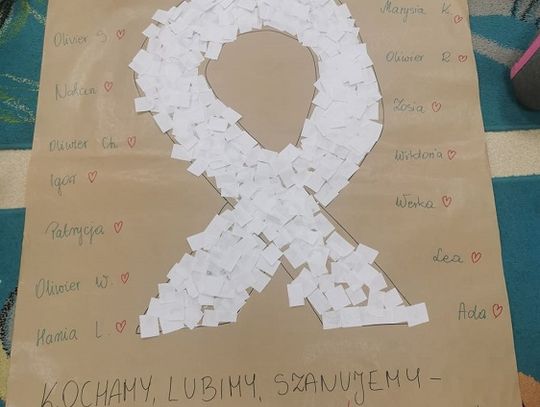 Olivier S.
Natan
Oliwier Ch.
Igor
Patrycja
Oliwier W.
Hania L.
Marysia K.
Oliwier R.
Zosia
Wiktoria
Werka
Lea
Ada
KOCHAMY, LUBIMY, SZANUJEMY -